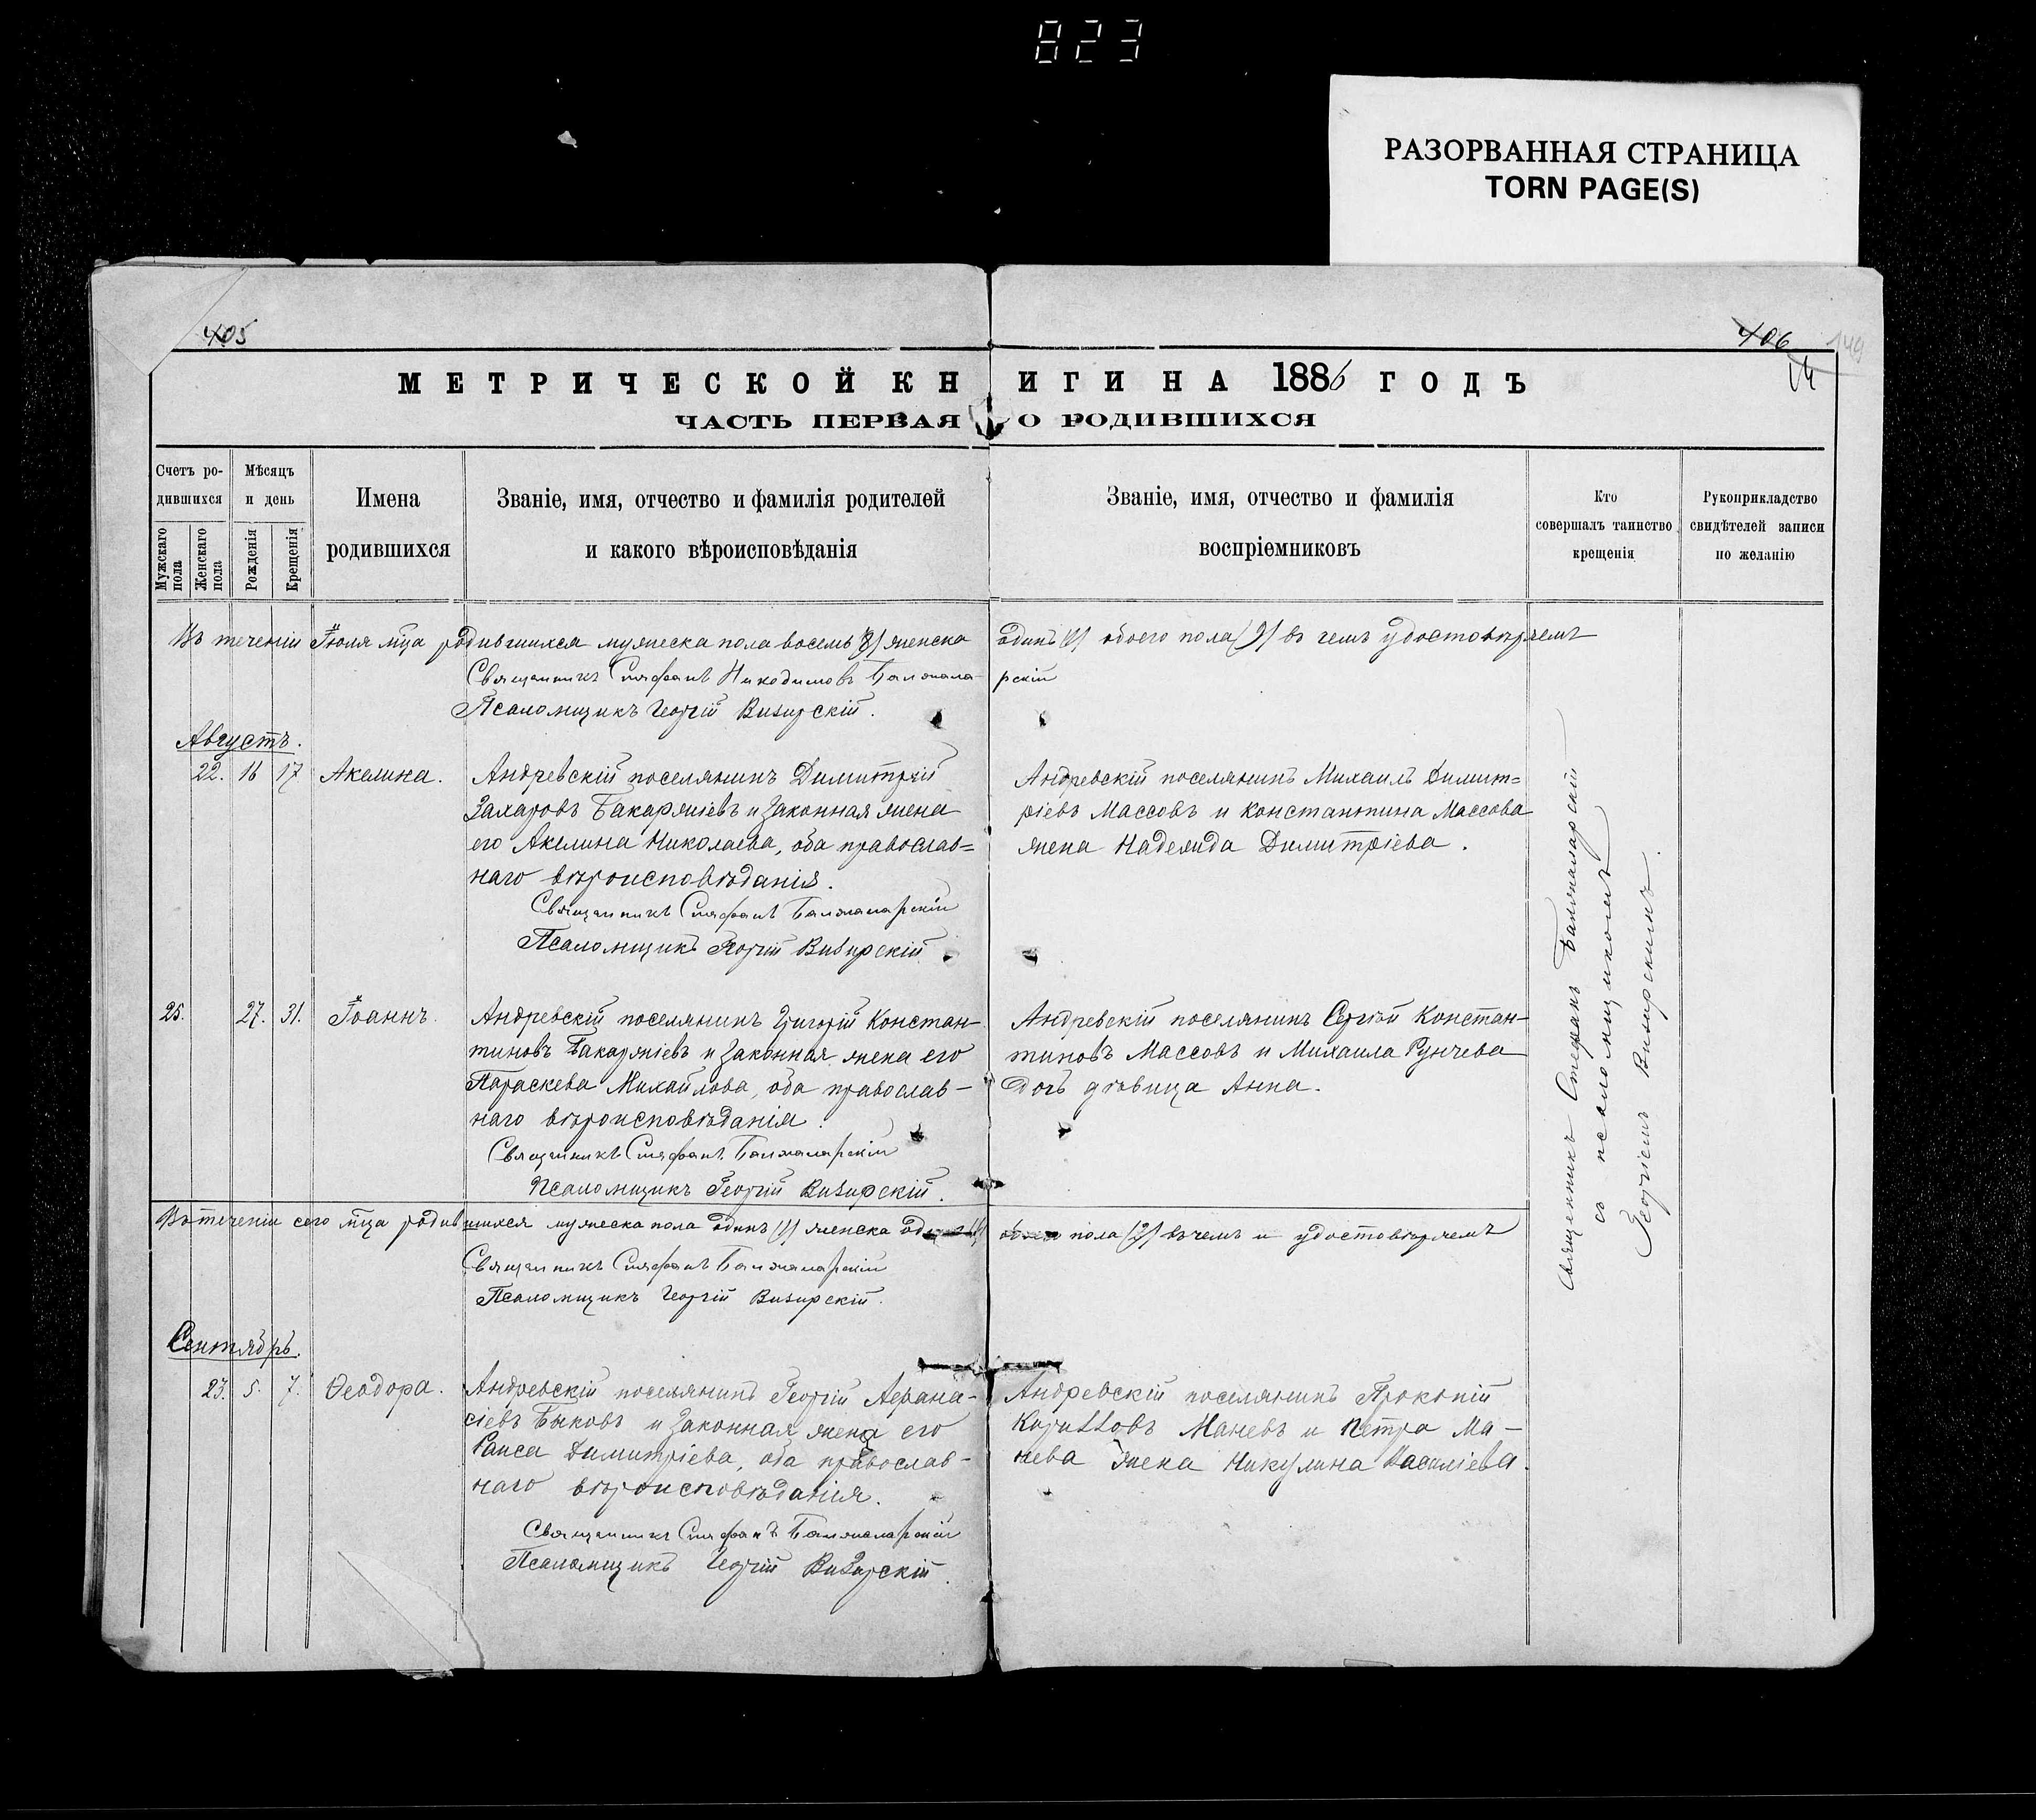 823
РАЗОРВАННАЯ СТРАНИЦА
TORN PAGE(S)
405
406
149
МЕТРИЧЕСКОЙ КНИГИ НА 1886 ГОДЪ
ЧАСТЬ ПЕРВАЯ О РОДИВШИХСЯ
Счетъ ро-
дившихся
Мужскаго пола
Женскаго пола
Мѣсяцъ
и день
Рожденія
Крещенія
Имена
родившихся
Званіе, имя, отчество и фамилія родителей
и какого вѣроисповѣданія
Званіе, имя, отчество и фамилія
воспріемниковъ
Кто
совершалъ таинство
крещенія
Рукоприкладство
свидѣтелей записи
по желанію
Въ теченіи Іюля мца родившихся мужеска пола восемь (8) женска одинъ (1) обоего пола (9) въ чемъ удостовѣряемъ
Священникъ Стефанъ Никодимовъ Баложаларскій
Псаломщикъ Георгій Визирскій.
Августъ.
22. 16 17 Акелина.
Андревскій поселянинъ Димитрій
Захаровъ Бакаржіевъ и законная жена
его Акелина Николаева, оба православ=
наго вѣроисповѣданія.
Священникъ Стефанъ
Псаломщикъ Георгій Визирскій
Андревскій поселянинъ Михаилъ Димит=
ріевъ Массовъ и Константина Массова
жена Надежда Димитріева.
25. 27. 31. Іоаннъ.
Андревскій поселянинъ Григорій Констан-
тиновъ Бакаржіевъ и законная жена его
Параскева Михайлова, оба православ-
наго вѣроисповѣданія.
Священникъ Стефанъ
Псаломщикъ Георгій Визирскій.
Андревскій поселянинъ Сергій Констан-
тиновъ Массовъ и Михаила Рунчева
дочь дѣвица Анна.
Въ теченіи сего мца родившихся мужеска пола одинъ (1) женска одна (1) обоего пола (2) въ чемъ и удостовѣряемъ
Священникъ Стефанъ
Псаломщикъ Георгій Визирскій.
Сентябрь.
23. 5. 7. Ѳеодора.
Андревскій поселянинъ Георгій Аѳана-
сіевъ Быковъ и законная жена его
Раиса Димитріева, оба православ-
наго вѣроисповѣданія.
Священникъ Стефанъ
Псаломщикъ Георгій Визирскій.
Андревскій поселянинъ Прокопій
Кирилловъ Маневъ и Петра Ма-
нева жена Никулина Василіева.
Священникъ Стефанъ
съ псаломщикомъ
Георгіемъ Визирскимъ.